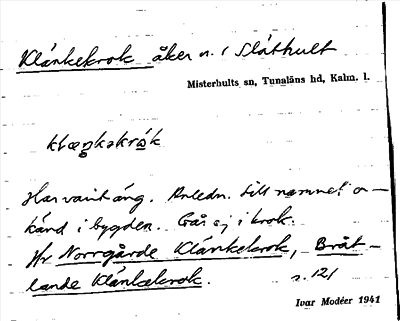 Klänkekrok åker n. i Slåthult
Misterhults sn, Tunaläns hd, Kalm. l.
klæŋkəkrɷk
Har varit äng. Anledn. till namnet o-
känd i bygden. Går ej i krok.
Hr Norrgårde Klänkekrok, Bråt-
lande Klänkekrok. s. 121
Ivar Modéer 1941